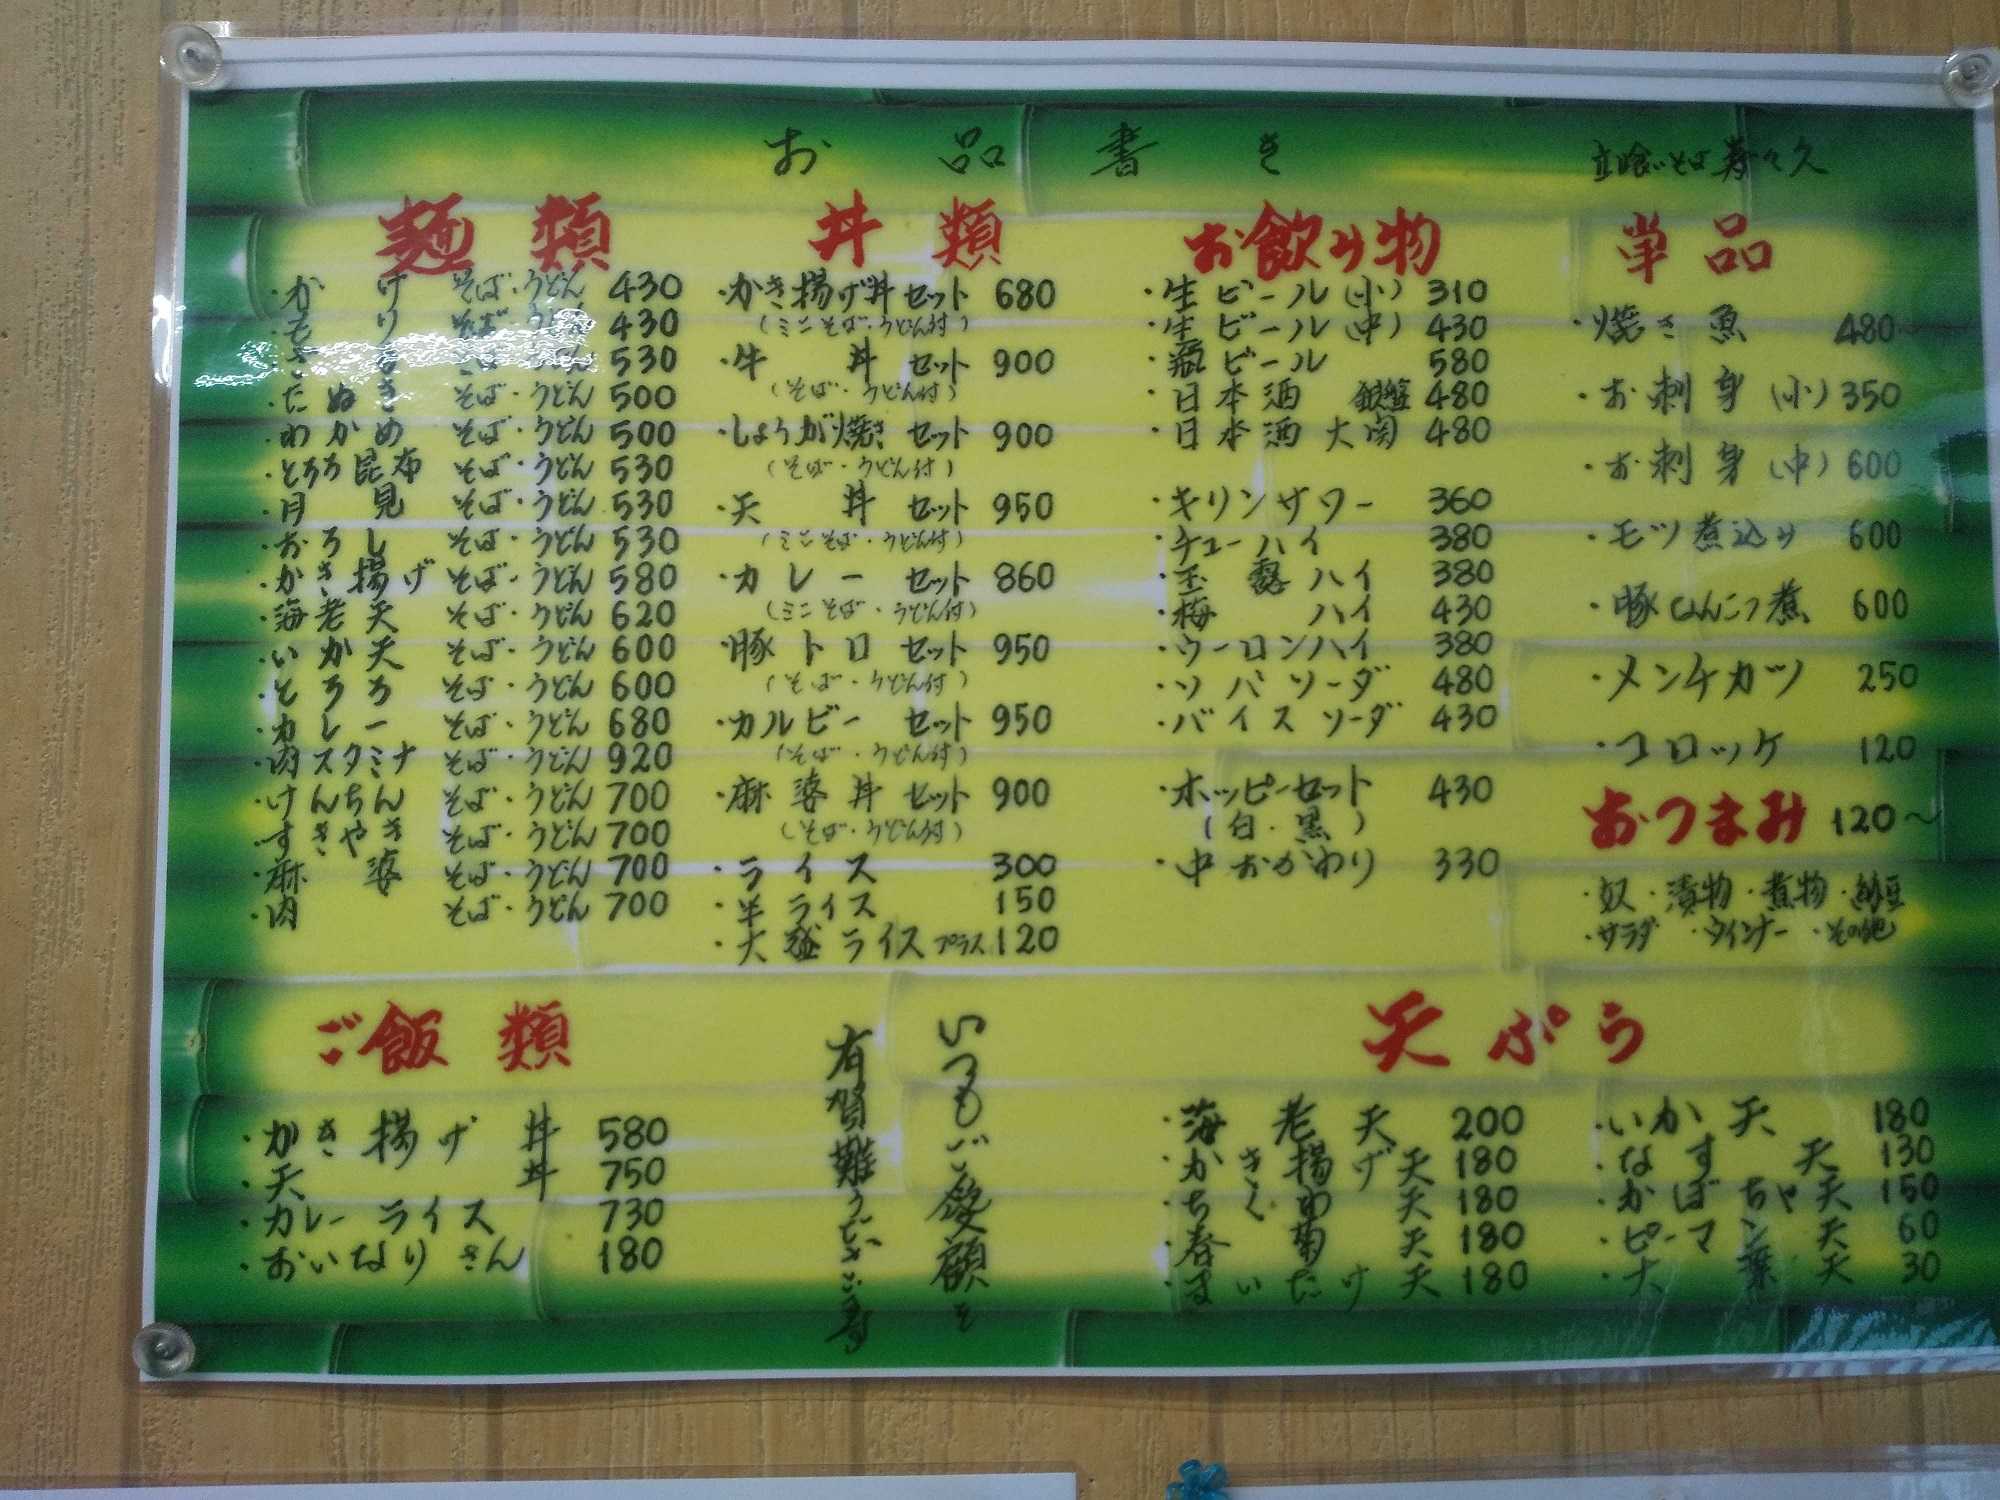 お品書き
立喰いそば 寿々久
麺類
・かけ そば・うどん 430
・もり そば・うどん 430
530
・たぬき そば・うどん 500
・わかめ そば・うどん 500
・とろろ昆布 そば・うどん 530
・月見 そば・うどん 530
・おろし そば・うどん 530
・かき揚げ そば・うどん 580
・海老天 そば・うどん 620
・いか天 そば・うどん 600
・とろろ そば・うどん 600
・カレー そば・うどん 680
・肉スタミナ そば・うどん 920
・けんちん そば・うどん 700
・すきやき そば・うどん 700
・麻婆 そば・うどん 700
・肉 そば・うどん 700
丼類
・かき揚げ丼セット 680
(ミニそば・うどん付)
・牛丼セット 900
(そば・うどん付)
・しょうが焼きセット 900
(そば・うどん付)
・天丼セット 950
(ミニそば・うどん付)
・カレーセット 860
(ミニそば・うどん付)
・豚トロセット 950
(そば・うどん付)
・カルビーセット 950
(そば・うどん付)
・麻婆丼セット 900
(そば・うどん付)
・ライス 300
・半ライス 150
・大盛ライス プラス 120
お飲み物
・生ビール(小) 310
・生ビール(中) 430
・瓶ビール 580
・日本酒 銀盤 480
・日本酒 大関 480
・キリンサワー 360
・チューハイ 380
・玉露ハイ 380
・梅ハイ 430
・ウーロンハイ 380
・ソバソーダ 480
・バイスソーダ 430
・ホッピーセット 430
(白・黒)
・中おかわり 330
単品
・焼き魚 480
・お刺身(小) 350
・お刺身(中) 600
・モツ煮込み 600
・豚なんこつ煮 600
・メンチカツ 250
・コロッケ 120
おつまみ 120〜
・奴・漬物・煮物・納豆
・サラダ・ウインナー・その他
ご飯類
・かき揚げ丼 580
・天丼 750
・カレーライス 730
・おいなりさん 180
いつもご愛顧を
有賀難うござい ます
天ぷら
・海老天 200
・かき揚げ天 180
・ちくわ天 180
・春菊天 180
・まいたけ天 180
・いか天 180
・なす天 130
・かぼちゃ天 150
・ピーマン天 60
・大葉天 30